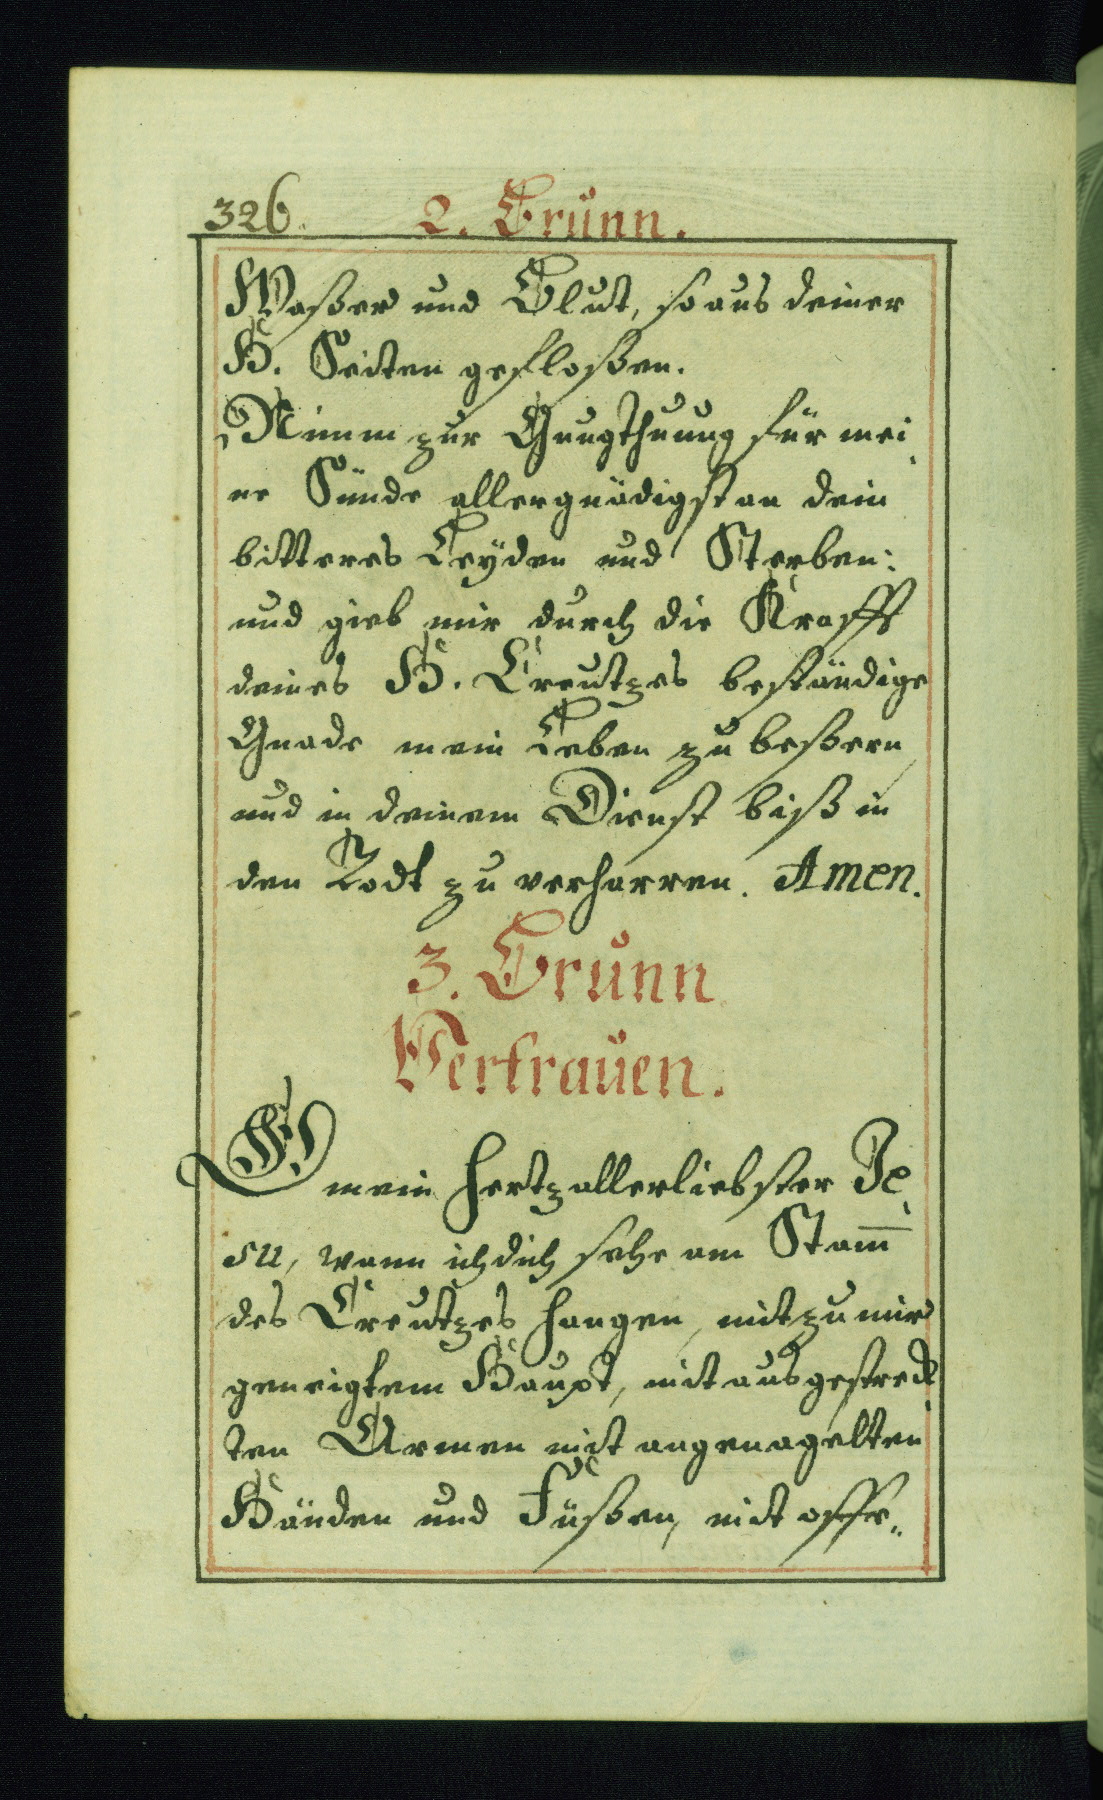 326. 2. Brunn.
Waßer und Blut, so aus deiner
H. Seiten gefloßen.
Nimm zur Gnugthuung für mei„
ne Sünde allergnädigst an dein
bitteres Leÿden und Sterben:
und gieb mir durch die Krafft
deines H. Creutzes beständige
Gnade mein Leben zu beßern,
und in deinem Dienst biß in
den Todt zu verharren. Amen.
3. Brunn
Vertrauen.
O mein hertzallerliebster Je„
su, wann ich dich sehe am Stam̅
des Creutzes hangen, mit zu mir
geneigtem Haupt, mit ausgestreck„
ten Armen mit angenagelten
Händen und Füßen, mit offe„